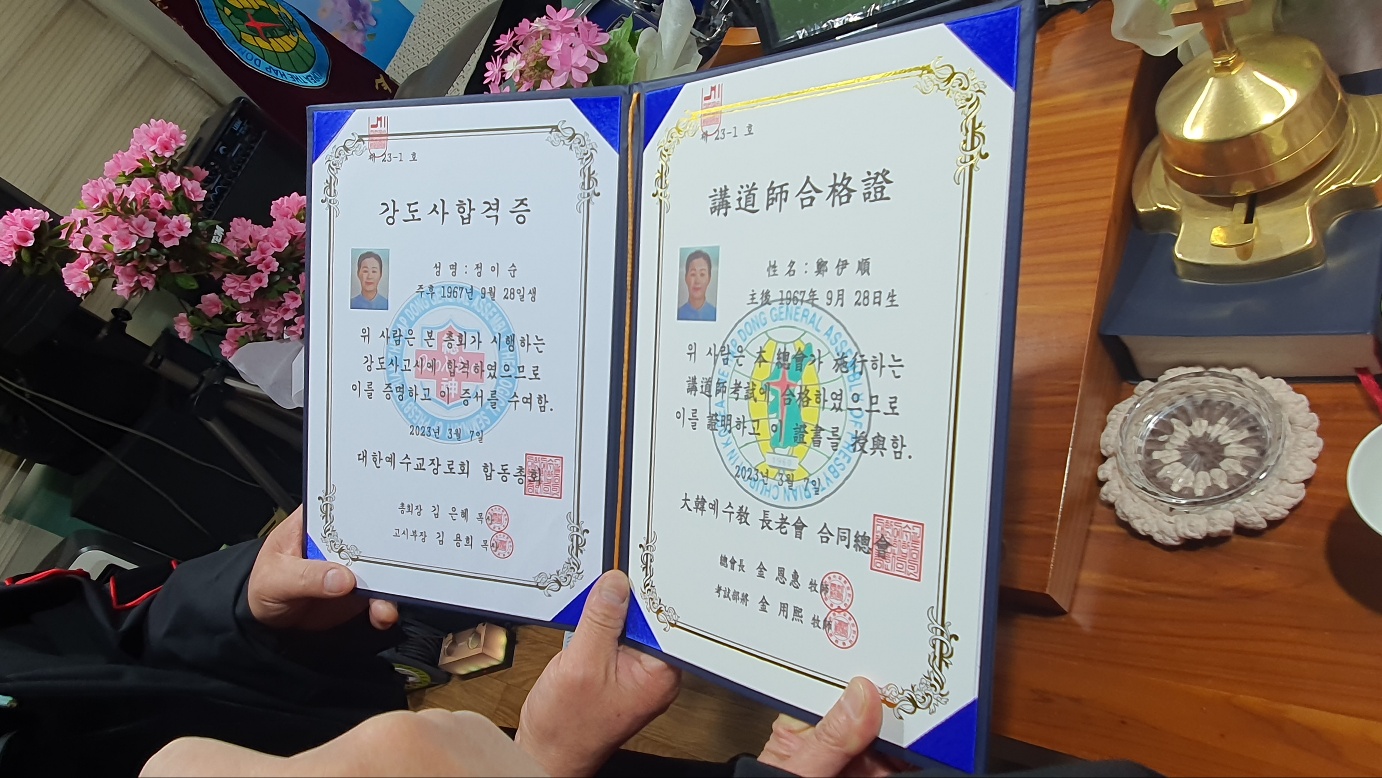 제 23-1 호
강도사합격증
성 명 : 정 이 순
주후 1967년 9월 28일생
위 사람은 본 총회가 시행하는
강도사고시에 합격하였으므로
이를 증명하고 이 증서를 수여함.
2023년 3월 7일
대한예수교장로회 합동총회
총회장 김 은혜 목
고시부장 김 용희 목
제 23-1 호
講道師合格證
姓 名 : 鄭 伊 順
主後 1967年 9月 28日生
위 사람은 本 總會가 施行하는
講道師考試에 合格하였으므로
이를 證明하고 이 證書를 授與함.
2023년 3월 7일
大韓예수敎 長老會 合同總會
總會長 金 恩惠 牧師
考試部將 金 用熙 牧師
DONG GENERAL ASSEMBLY OF PRESBYTRIAN CHURCH IN KOREA
神